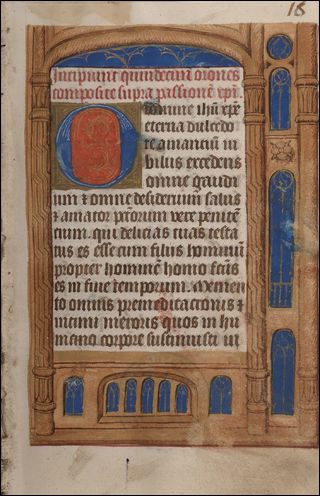 18
Incipiunt quindecim orones
composite supra passione xpi.
O domine ihu xpe
eterna dulcedo
te amantium iu
bilus excedens
omne gaudi
um & omne desiderium salus
& amator pctorum vere penite
tium. qui delicias tuas testa
tus es esse cum filiis hominum
propter homine homo factus
es in fine temporum. Memen
to omnis premeditationis &
intimi meroris quos in hu
mano corpore sustinuisti in